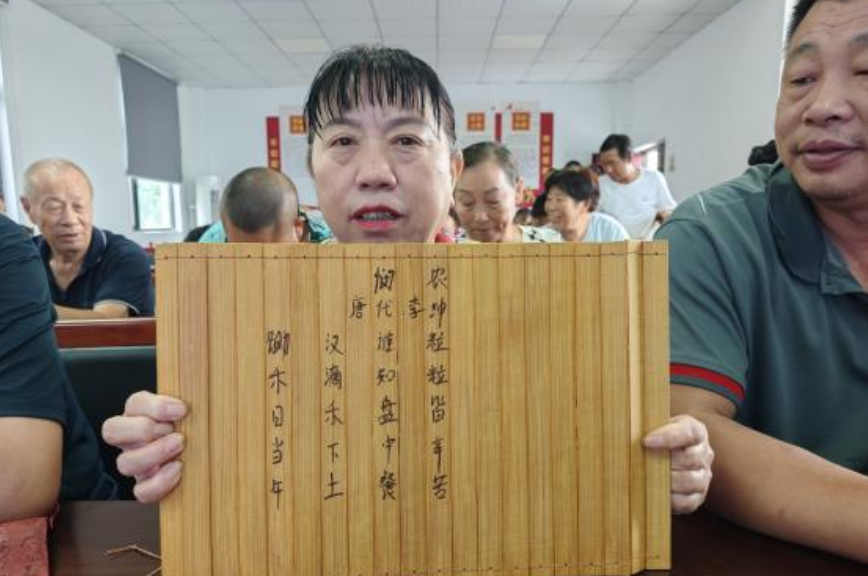 悯农
唐代 李绅
锄禾日当午
汉滴禾下土
谁知盘中餐
粒粒皆辛苦